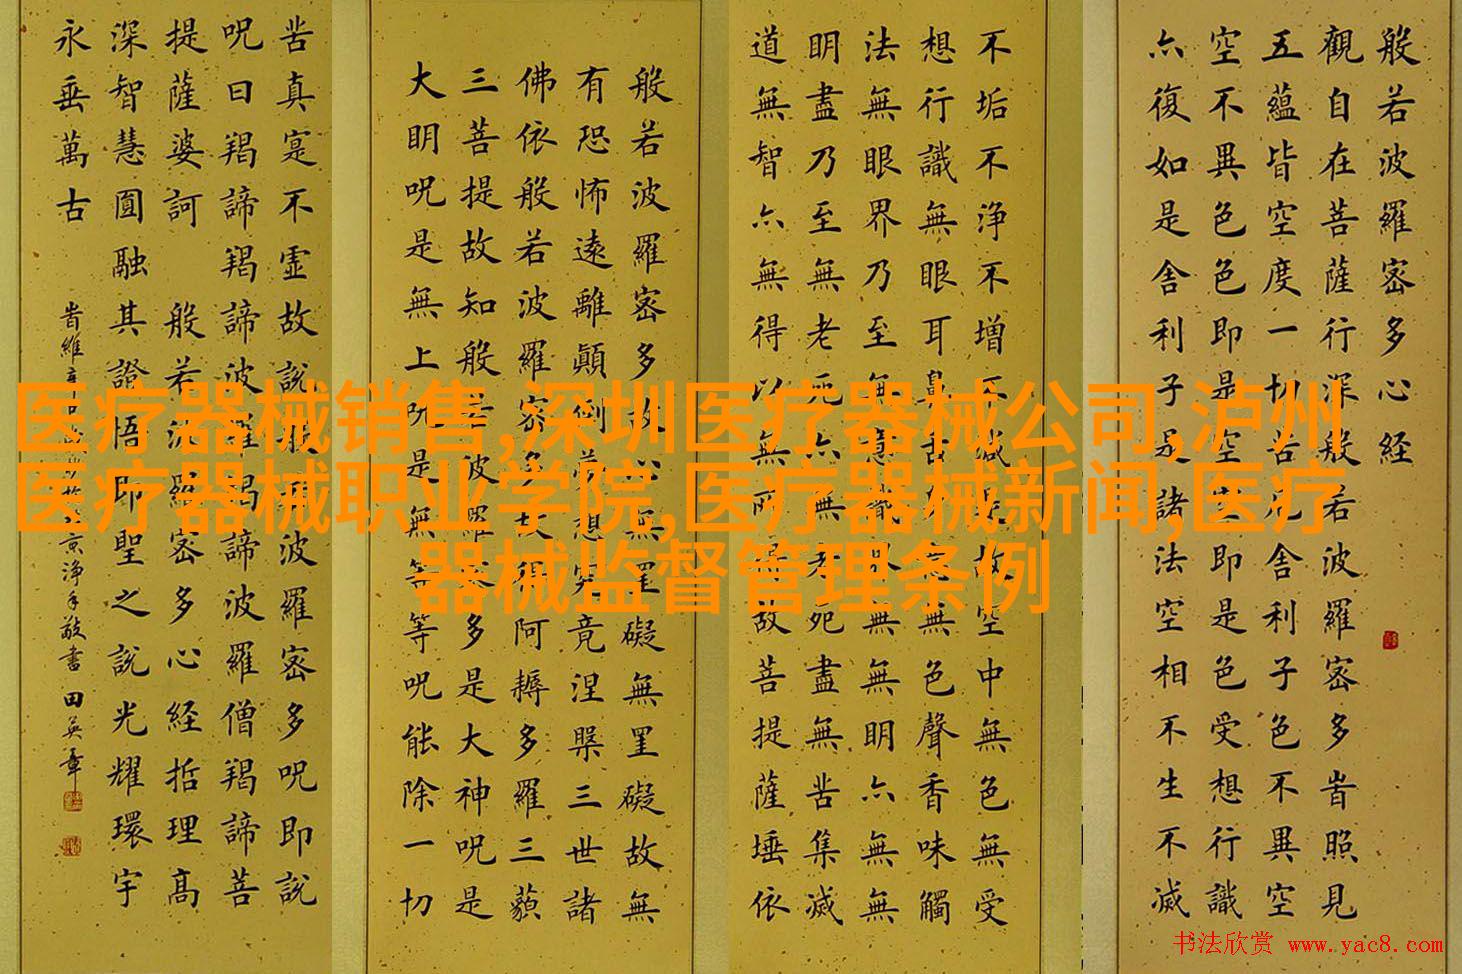 般若波羅密多心経
觀自在菩薩行深般若波羅密多旹照見
五蘊皆空度一切苦厄舎利子色不異空
空不異色色即是空空即是色受想行識
亦復如是舎利子是諸法空相不生不滅
不垢不浄不增不減是故空中無色無受
想行識無眼耳鼻舌身意無色聲香味觸
法無眼界乃至無意識界無無明亦無無
明盡乃至無老死亦無老死盡無苦集滅
道無智亦無得以無所得故菩提薩埵依
般若波羅密多故心無罣礙無罣礙故無
有恐怖遠離顛倒夢想究竟涅槃三世諸
佛依般若波羅密多故得阿耨多羅三藐
三菩提故知般若波羅密多是大神呪是
大明呪是無上呪是無等等呪能除一切
苦真寔不虚故說般若波羅密多呪即說
呪曰羯諦羯諦波羅羯諦波羅僧羯諦菩
提薩婆訶 般若波羅密多心経括理高
深智慧圓融其證悟即聖之説光耀環宇
永垂萬古
旹維 京淨手敬書 田英章
医疗器械销售,深圳医疗器械公司,泸州
医疗器械职业学院,医疗器械新闻,医疗
器械监督管理条例
书法欣赏 www.yac8.com